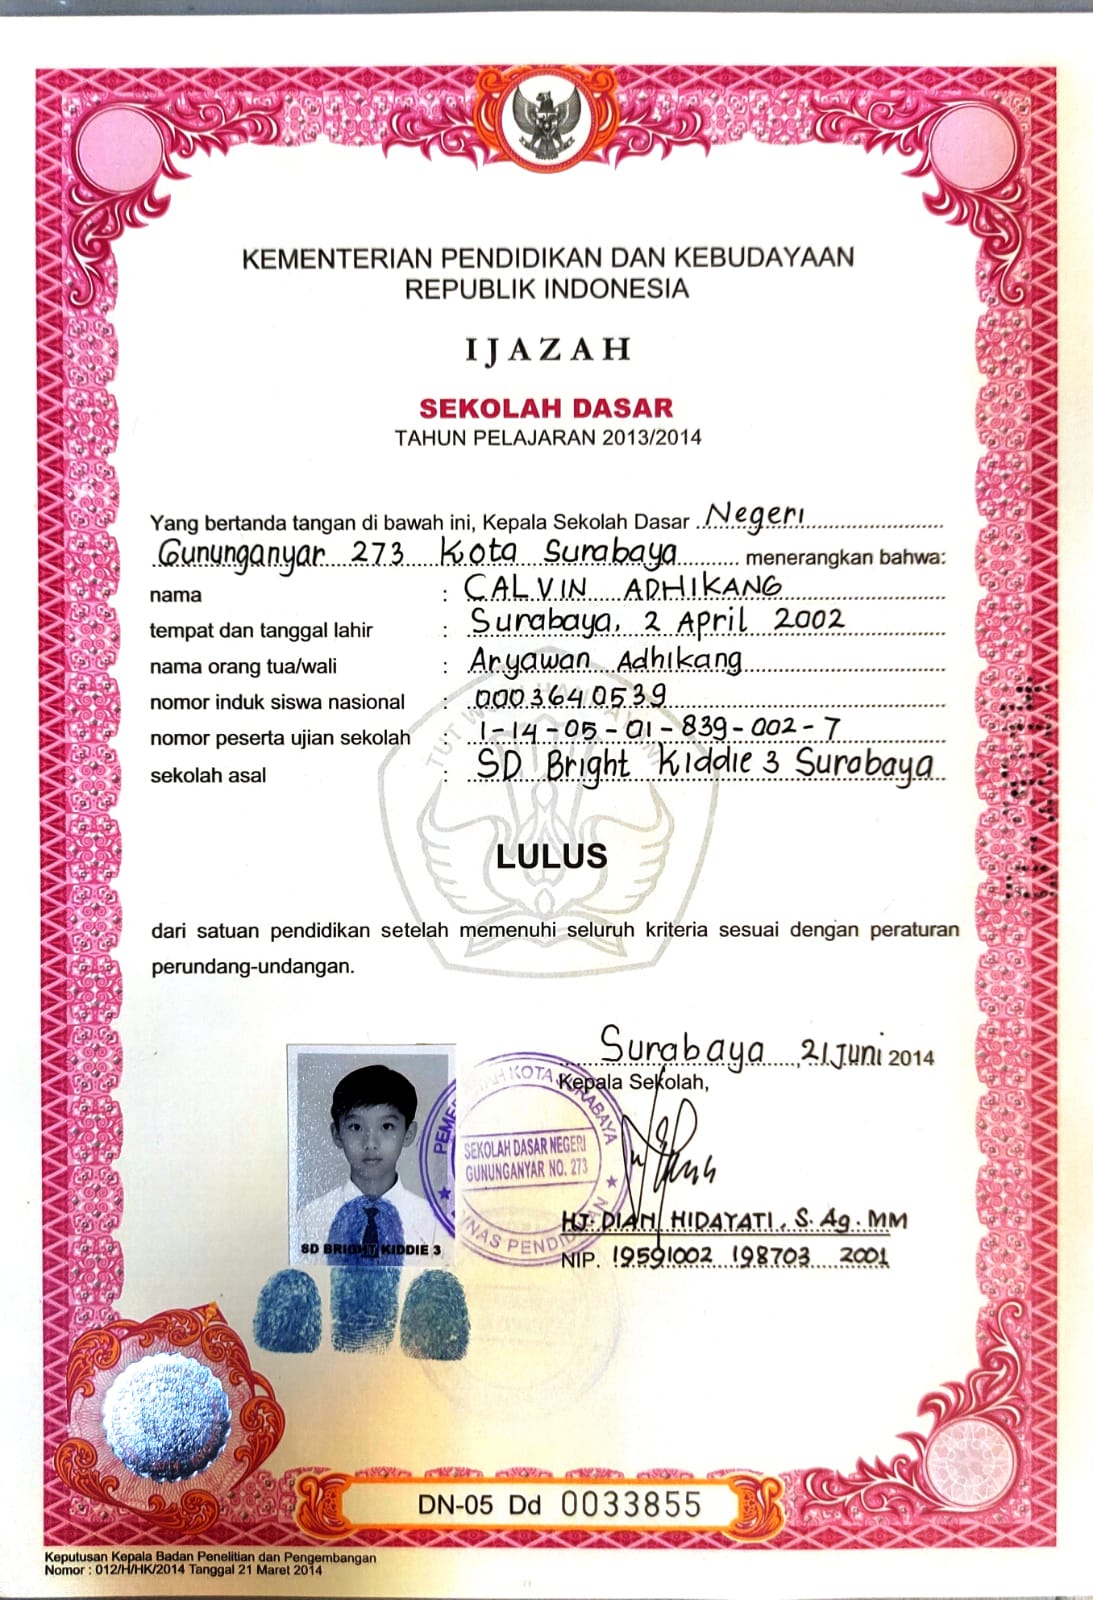 KEMENTERIAN PENDIDIKAN DAN KEBUDAYAAN
REPUBLIK INDONESIA
IJAZAH
SEKOLAH DASAR
TAHUN PELAJARAN 2013/2014
Yang bertanda tangan di bawah ini, Kepala Sekolah Dasar Negeri
Gununganyar 273 Kota Surabaya menerangkan bahwa:
nama : CALVIN ADHIKANG
tempat dan tanggal lahir : Surabaya, 2 April 2002
nama orang tua/wali : Aryawan Adhikang
nomor induk siswa nasional : 0003640539
nomor peserta ujian sekolah : 1-14-05-01-839-002-7
sekolah asal : SD Bright Kiddie 3 Surabaya
LULUS
dari satuan pendidikan setelah memenuhi seluruh kriteria sesuai dengan peraturan
perundang-undangan.
Surabaya, 21 Juni 2014
Kepala Sekolah,
KOTA SURABAYA
SEKOLAH DASAR NEGERI
GUNUNGANYAR NO. 273
HJ. DIAN HIDAYATI, S. Ag. MM
NIP. 19591002 198703 2001
SD BRIGHT KIDDIE 3
DN-05 Dd 0033855
Keputusan Kepala Badan Penelitian dan Pengembangan
Nomor : 012/H/HK/2014 Tanggal 21 Maret 2014